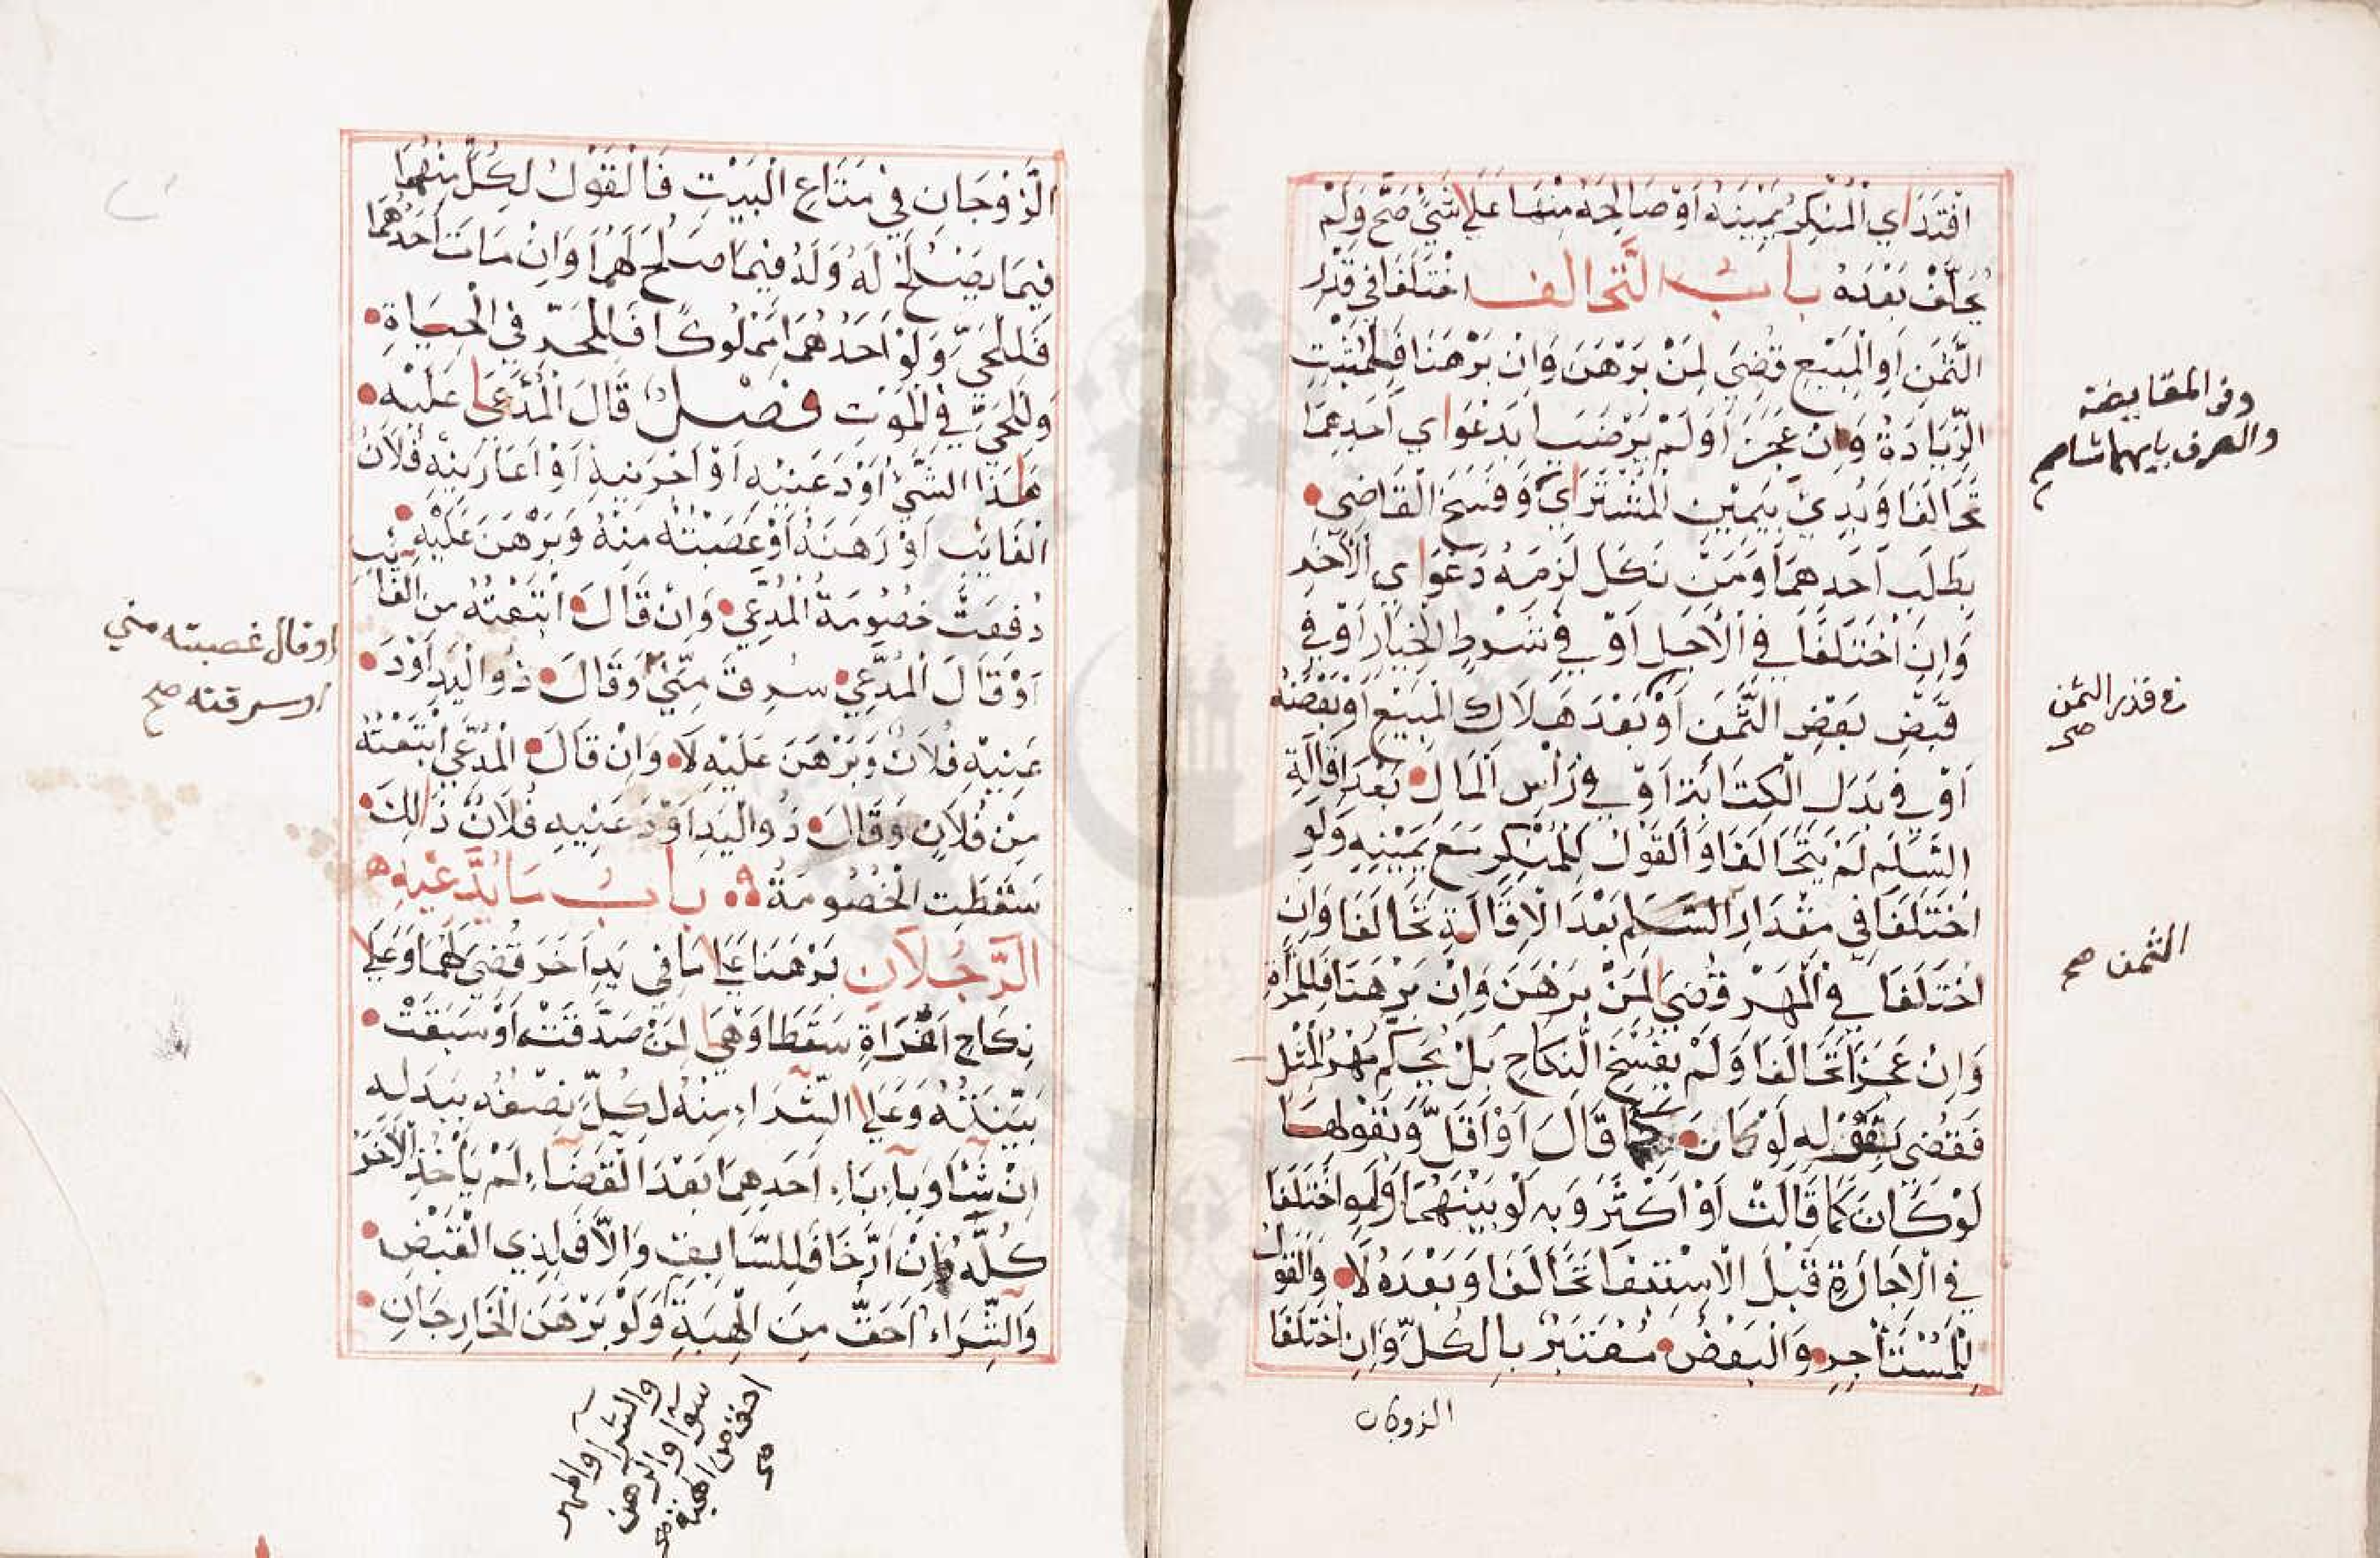 افْتَدَاي الْمُنْكِرُ يَمِيْنَهُ اَوْ صَالَحَهُ مِنْهَا عَلَي شَيْءٍ صَحَّ وَلَمْ
يُحَلَّفْ بَعْدَهُ بابُ التَّحالف اخْتَلَفَا فِي قَدْرِ
الثَّمَنِ اَوِ الْمَبِيْعِ قُضِيَ لِمَنْ بَرْهَنَ وَاِنْ بَرْهَنَا فَلِمُثْبِتِ
الزِّيَادَةُ وَاِنْ عَجَزَا وَلَمْ يَرْضَيَا بِدَعْوَاي اَحَدِهِمَا
تَحَالَفَا وَبُدِيَ بِيَمِيْنِ الْمُشْتَرَايْ وَفَسَخَ الْقَاضِي
بِطَلَبِ اَحَدِهِمَا وَمَنْ نَكَلَ لَزِمَهُ دَعْوَاي الْاٰخَرِ
وَاِنِ اخْتَلَفَا فِي الْاَجَلِ اَوْ فِي شَرْطِ الْخِيَارِ اَوْ فِي
قَبْضِ بَعْضِ الثَّمَنِ اَوْ بَعْدَ هَلَاكِ الْمَبِيْعِ اَوْ بَعْضَهُ
اَوْ فِي بَدَلِ الْكِتَابَةِ اَوْ فِي رَأْسِ الْمَالِ بَعْدَ اِقَالَةِ
السَّلَمِ لَمْ يَتَحَالَفَا وَالْقَوْلُ لِلْمُنْكِرِ مَعَ يَمِيْنِهِ وَلَوِ
اخْتَلَفَا فِي مِقْدَارِ السَّلَمِ بَعْدَ الْاِقَالَةِ تَحَالَفَا وَاِنِ
اخْتَلَفَا فِي الْمَهْرِ قُضِيَ لِمَنْ بَرْهَنَ وَاِنْ بَرْهَنَا فَلِلْمَرْأَةِ
وَاِنْ عَجَزَا تَحَالَفَا وَلَمْ يُفْسَخِ النِّكَاحِ بَلْ يُحَكَّمُ مَهْرُ الْمِثْلِ
فَقُضِي بِقَوْلِهِ لَوْ كَانَ كَمَا قَالَ اَوْ اَقَلَّ وَبِقَوْلِهَا
لَوْ كَانَ كَمَا قَالَتْ اَوْ اَكْثَرَ وَبِهِ لَوْ بَيْنَهُمَا وَلَوِ اخْتَلَفَا
فِي الْاِجَارَةِ قَبْلَ الْاِسْتِيْفَا تَحَالَفَا وَبَعْدَهُ لَا وَالْقَوْلُ
لِلْمُسْتَأْجِرِ وَالْبَعْضُ مُعْتَبَرُ بِالْكُلِّ وَاِنِ اخْتَلَفَا
الزوجان
وفي المقايضة
والصرف بايهما شا صح
في قدر الثمن
صح
الثمن صح
الزَّوْجَانِ فِي مَتَاعِ الْبَيْتِ فَالْقَوْلُ لِكُلِّ مِنْهُمَا
فِيْمَا يَصْلُحُ لَهُ وَلَهُ فِيْمَا صَلُحَ لَهُمَا وَاِنْ مَاتَ اَحَدُهُمَا
فَلِلْحَيِّ وَلَوْ اَحَدُهُمَا مَمْلُوكًا فَلِلْحُرِّ فِي الْحَيَاةِ
وَلِلْحَيِّ فِي الْمَوْتِ فصْلٌ قَالَ الْمُدَّعَا عَلَيْهِ
هٰذَا الشَّيْءُ اَوْدَعَنِيْهِ اَوْ اٰجَرَنِيْهِ اَوْ اَعَارَنِيْهِ فُلَانٌ
الْغَايِبُ اَوْ رَهَنَهُ اَوْ غَصَبْتُهُ مِنْهُ وَبَرْهَنَ عَلَيْهِ
دُفِعَتْ خُصُومَةُ الْمُدَّعِي وَاِنْ قَالَ ابْتَعْتُهُ مِنَ الْغَائِبِ
اَوْ قَالَ الْمُدَّعِي سُرِقَ مِنِّي وَقَالَ ذُو الْيَدِ اَوْدَ
عَنِيْهِ فُلَانٌ وَبَرْهَنَ عَلَيْهِ لَا وَاِنْ قَالَ الْمُدَّعِي ابْتَعْتُهُ
مِنْ فُلَانٍ وَقَالَ ذُو الْيَدِ اَوْدَعَنِيهِ فُلَانٌ ذَالِكَ
سَقَطَتِ الْخُصُومَةُ بابُ مَا يَدَّعِيْهِ
الرَّجُلَانِ بَرْهَنَا عَلَي مَا فِي يَدِ اٰخَرَ قُضِيَ لَهُمَا وَعَلَي
نِكَاحِ امْرَاةٍ سَقَطَا وَهِيَ لِمَنْ صَدَّقَتْهُ اَوْ سَبَقَتْ
بَيِّنَتُهُ وَعَلَي الشِّرَاءِ مِنْهُ لِكُلٍّ نِصْفُهُ بِبَدَلِهِ
اِنْ شَآءَ وَبِاِبَاءِ اَحَدِهِمَا بَعْدَ الْقَضَاءِ لَمْ يَأْخُذِ الْاٰخَرُ
كُلَّهُ وَاِنْ اَرَّخَا فَلِلسَّابِقِ وَاِلَّا فَلِذِي الْقَبْضِ
وَالشِّرَاءُ اَحَقُّ مِنَ الْهِبَةِ وَلَوْ بَرْهَنَ الْخَارِجَانِ
او قال غصبته مني
او سرقته صح
والشرآ والمهر
سوآ والرهن
احق من الهبة صح